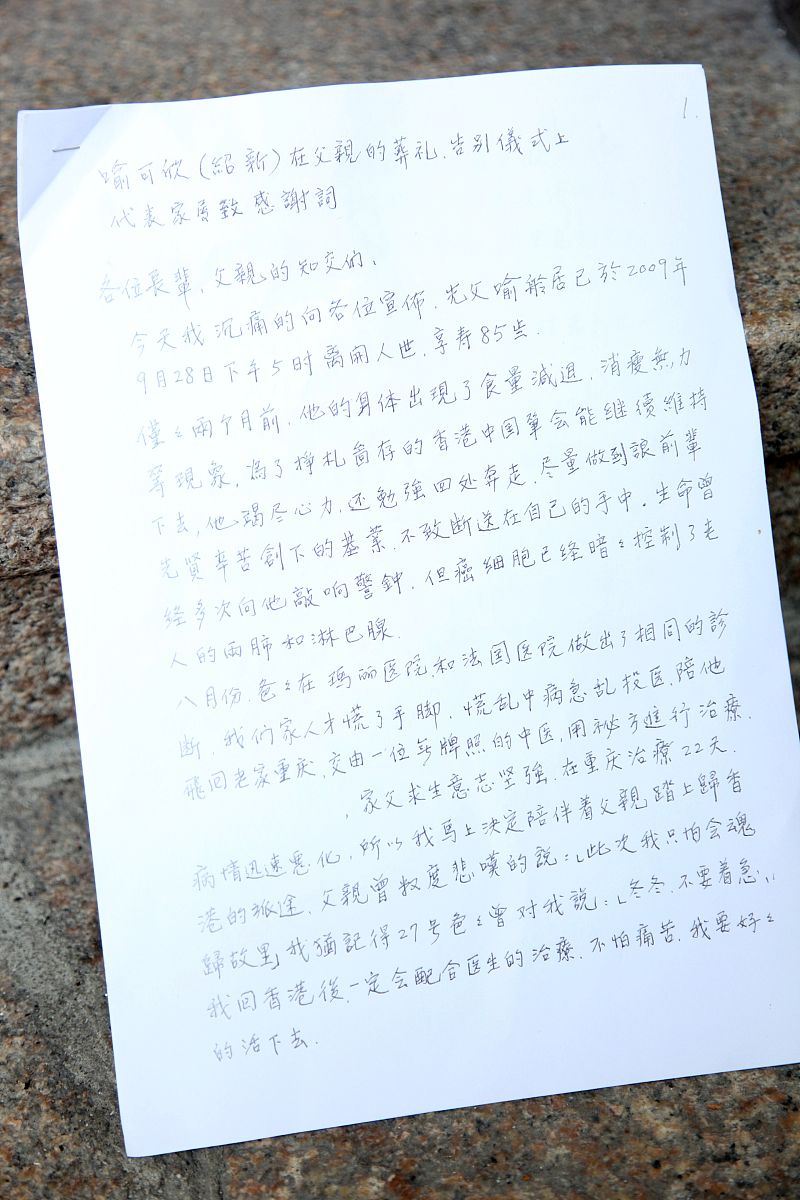 1.
喻可欣(紹新)在父親的葬礼.告别儀式上
代表家属致感謝詞
各位長輩,父親的知交们、
今天我沉痛的向各位宣佈.先父喻舲居已於2009年
9月28日下午5时离開人世.享寿85岁.
僅々兩个月前.他的身体出現了食量減退.消瘦無力
等現象,為了掙扎啬存的香港中国筆会能继续維持
下去,他竭尽心力.还勉強四处奔走.尽量做到讓前輩
先賢辛苦創下的基業.不致断送在自己的手中.生命曾
经多次向他敲响警鈡.但癌细胞已经暗々控制了老
人的兩肺和淋巴腺.
八月份.爸々在瑪丽医院.和法国医院做出了相同的診
断.我们家人才慌了手脚.慌乱中病急乱投医.陪他
飛回老家重庆.交由一位無牌照的中医.用祕方進行治療.
,家父求生意志坚強.在重庆治療22天.
病情迅速惡化,所以我馬上決定陪伴着父親踏上歸香
港的旅途.父親曾数度悲嘆的說:「此次我只怕会魂
歸故里」我猶記得27号爸々曾对我說:「冬冬.不要着急,
我回香港後.一定会配合医生的治療.不怕痛苦.我要好々
的活下去.